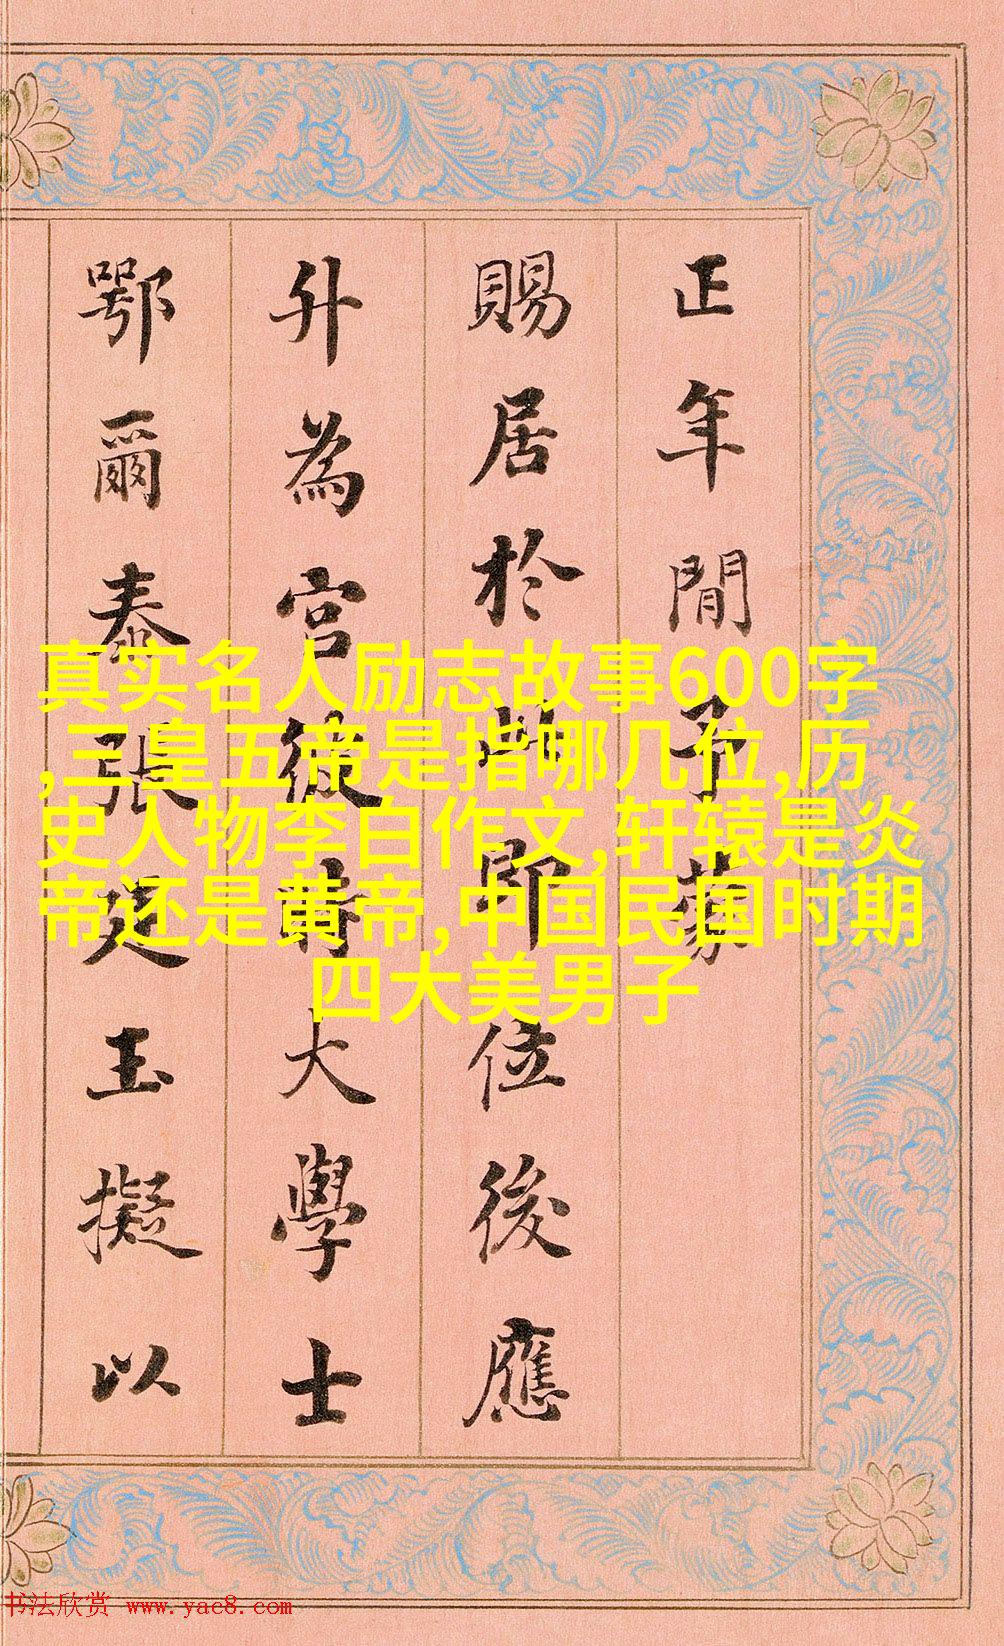 正年間予蒙
賜居於此即位後應
升為宮彼時大學士
鄂爾泰張廷玉擬以
真实名人励志故事600字
,三皇五帝是指哪几位,历
史人物李白作文,轩辕是炎
帝还是黄帝,中国民国时期
四大美男子
书法欣赏 www.yac8.com